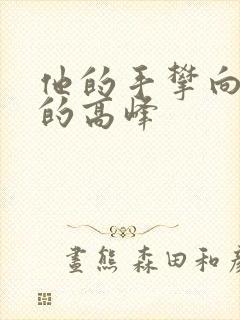 他的手攀向
的高峰
畫熊 森田和彥